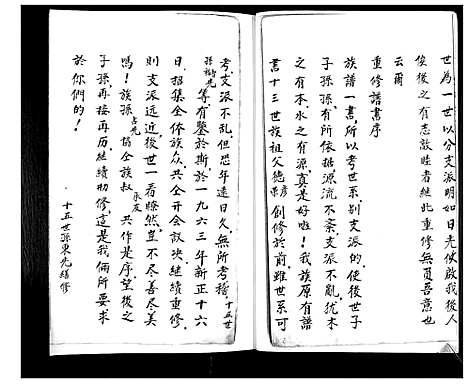 世為一世以分支派明如日先使啟我後人
俟後之有志敬睦者繼此重修無負吾意也
云爾
重修譜書序
族譜一書，所以考世系，別支派的，使後世子
子孫孫，有所依據，源流不紊，支派不亂，猶木
之有本，水之有源，真是好啦！我族原有譜
書，十三世族祖父德彥創修於前，雖世系可
考，支派不亂，但思年遠日久，無所考稽，十五世
孫樹光等有鑒於斯，於一九六三年新正十六
日，招集全体族众，共仝开会议决，继续重修，
則支派远近，後世一看瞭然，豈不尽善尽美
嗎！族孫占先協仝族叔永友共作是序，望後之
子孫，再接再历，继续切修，这是我俩所要求
於你們的！
十五世孫東先繕修